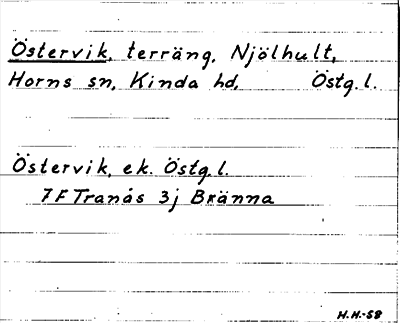 Östervik, terräng, Njölhult,
Horns sn, Kinda hd, Östg. l.
Östervik, ek. Östg. l.
7F Tranås 3j Bränna
H.H.-58